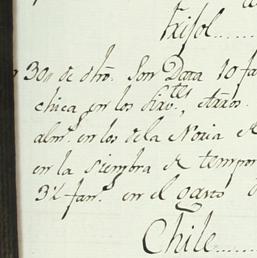 Frisol......
30,, de dho. Son Data 10 fa
chica en los
alm.s en los de la Noria
en la siembra de tempor
3½ fan.s en el gasto
Chile......